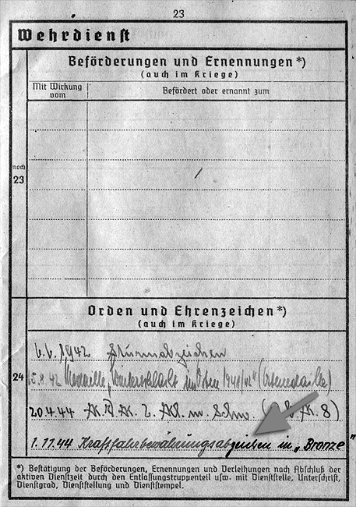 23
Wehrdienst
Beförderungen und Ernennungen*)
(auch im Kriege)
Mit Wirkung vom
Befördert oder ernannt zum
noch
23
Orden und Ehrenzeichen*)
(auch im Kriege)
6.6.1942 Sturmabzeichen
24
Medaille "Winterschlacht im Osten 1941/42" (Ostmedaille)
20.4.44 K.V.K. 2. Kl. m. Schw.
1.11.44 Kraftfahrbewährungsabzeichen in „Bronze"
*) Bestätigung der Beförderungen, Ernennungen und Verleihungen nach Abschluß der
aktiven Dienstzeit durch den Entlassungstruppenteil usw. mit Dienststelle, Unterschrift,
Dienstgrad, Dienststellung und Dienststempel.